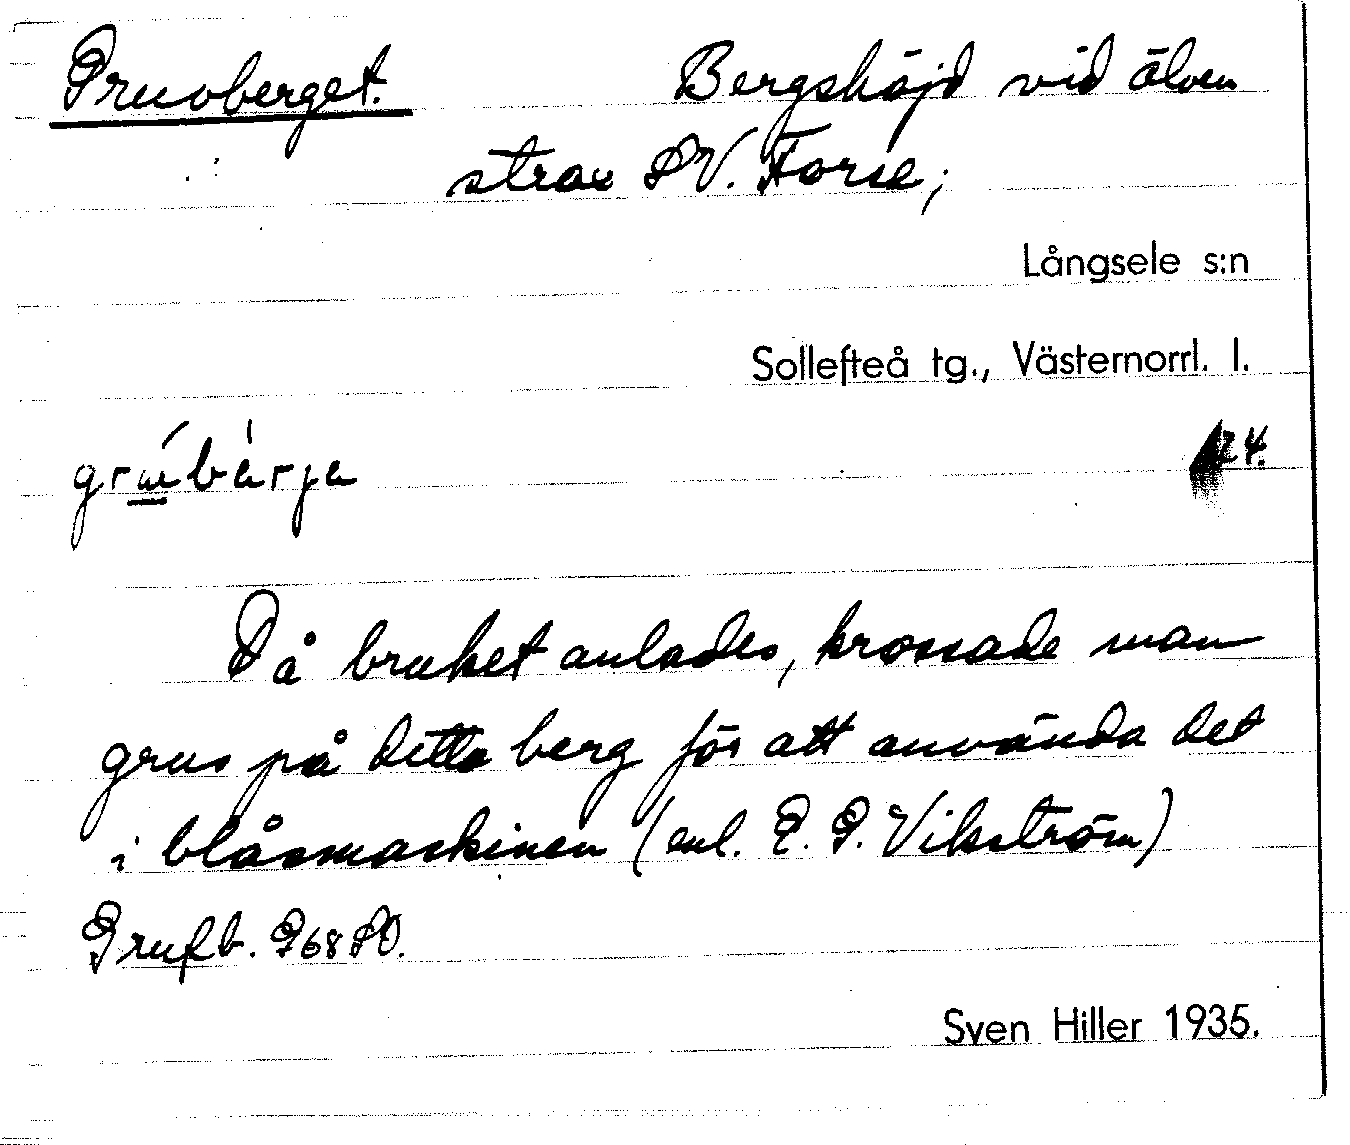 Gruvberget. Bergshöjd vid älven
strax SV. Forse;
Långsele s:n
Sollefteå tg., Västernorrl. l.
24.
Då bruket anlades, krossade man
grus på detta berg för att använda det
i blåsmaskinen (enl. E. G. Vikström)
Grufb. G68SO.
Sven Hiller 1935.